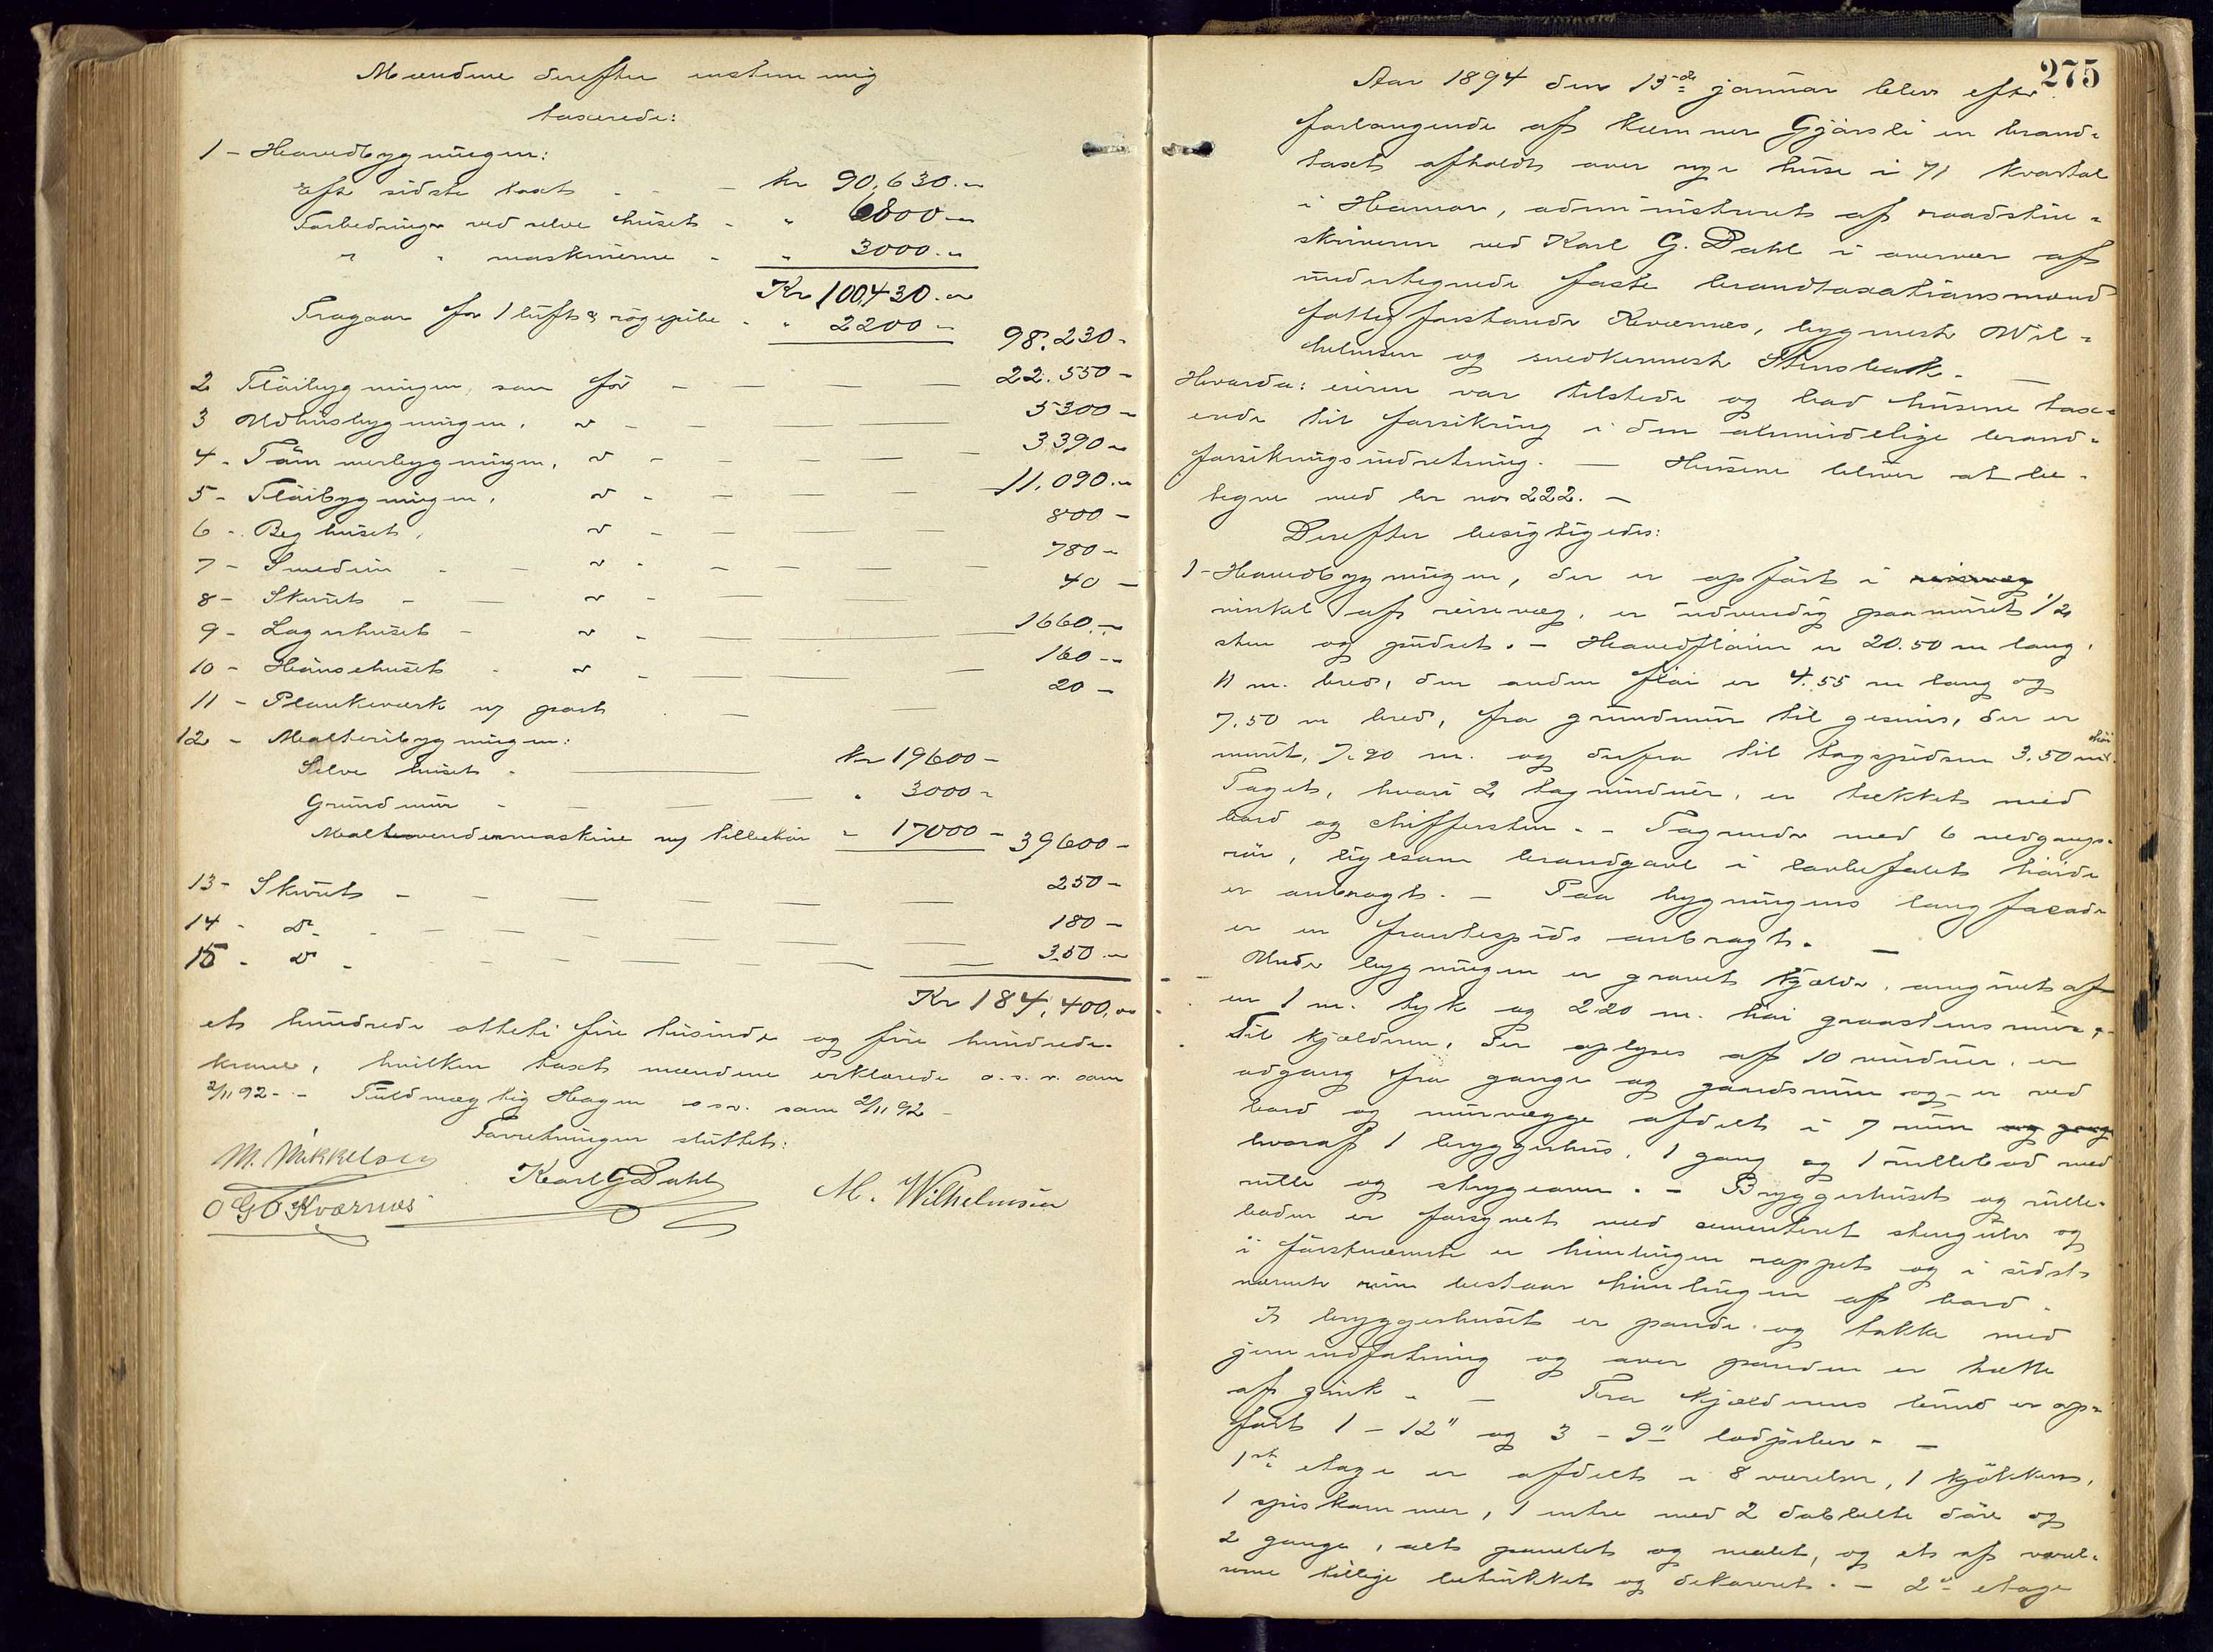 Mændene derefter enstemmig
taxerede:
1 - Hovedbygningen:
Eft sidste taxt - - - kr 90,630.-
Forbedringer ved selve huset - " 6800 -
" " maskinerne - " 3000.-
Kr 100430.-
Fragaar for 1 luft & røgpibe - " 2200 - 98.230 -
2 Fløibygningen, som før - - - - 22.550 -
3 Udhusbygningen, " - - - - 5300 -
4 - Tømmerbygningen, " - - - - 3390 -
5 - Fløibygningen, " - - - - 11.090.-
6 - Beghuset, " - - - - 800 -
7 - Smedien - - " - - - - 780 -
8 - Skuret - - " - - - - 40 -
9 - Lagerhuset - " - - - - 1660.-
10 - Hønsehuset - " - - - 160 -
11 - Plankeværk og port - - - 20 -
12 - Malteribygningen:
Selve huset - kr 19600 -
Grundmur - - - - " 3000 -
Maltvendermaskine og tilbehør " 17000 - 39600 -
13 - Skuret - - - - - - 250 -
14 - do - - - - - - 180 -
15 - do - - - - - - 350.-
Kr 184,400,00
et hundrede otteti fire tusinde og fire hundrede
kroner, hvilken taxt mændene erklærede o.s.v. som
2/11 92 - - Fuldmægtig Hagen osv. som 2/11 92 -
Forretningen sluttet:
M. Mikkelsen
Karl G Dahl
M. Wilhelmsen
O G O Kværnes
275
Aar 1894 den 15de januar blev efter
forlangende af kemner Gjørsli en brand-
taxt afholdt over nye huse i 71 kvartal
i Hamar, administreret af raadstue-
skriveren ved Karl G. Dahl i overvær af
undertegnede faste brandtaxationsmænd
fattigforstander Kværnes, bygmester Wil-
helmsen og snedkermester Stensbak. -
Hvorda: eieren var tilstede og bad husene tax-
erede til forsikring i den almindelige brand-
forsikringsindretning. - Husene bliver at be-
tegne med br no 222. -
Derefter besigtigedes:
1 - Hovedbygningen, der er opført i reisvæg
vinkel af reisevæg, er udvendig paamuret 1/2
sten og pudset. - Hovedfløien er 20.50 m lang,
11 m. bred, den anden fløi er 4.55 m lang og
7.50 m bred, fra grundmur til gesims, der er
muret, 7.20 m. og derfra til tagspidsen 3.50 m høi.
Taget, hvori 2 tagvinduer, er tækket med
bord og skiffersten. - Tagrender med 6 nedgangs-
rør, ligesom brandgavl i lovbefalet høide
er anbragt. - Paa bygningens langfacade
er en frontespids anbragt. -
Under bygningen er gravet kjælder, omgivet af
en 1 m. tyk og 2.20 m. høi graastensmur. -
Til kjælderen, der oplyses af 10 vinduer, er
adgang fra gange og gaardsrum og er ved
bord og murvægge afdelt i 7 rum og gang
hvoraf 1 bryggerhus, 1 gang og 1 rullebod med
rulle og strygeovn. - Bryggerhuset og rulle-
boden er forsynet med cementeret stengulv og
i førstnævnte er himlingen rappet og i sidst-
nævnte rum bestaar himlingen af bord.
I bryggerhuset er pande og takke med
jernindfatning og over panden er hætte
af zink. - Fra kjælderens bund er op-
ført 1 - 12" og 3 - 9" lodpiber. -
1ste etage er afdelt i 8 værelser, 1 kjøkken,
1 spiskammer, 1 entre med 2 dobbelte døre og
2 gange, alt panelet og malet, og et af værel-
serne tillige betrukket og dekoreret. - 2den etage